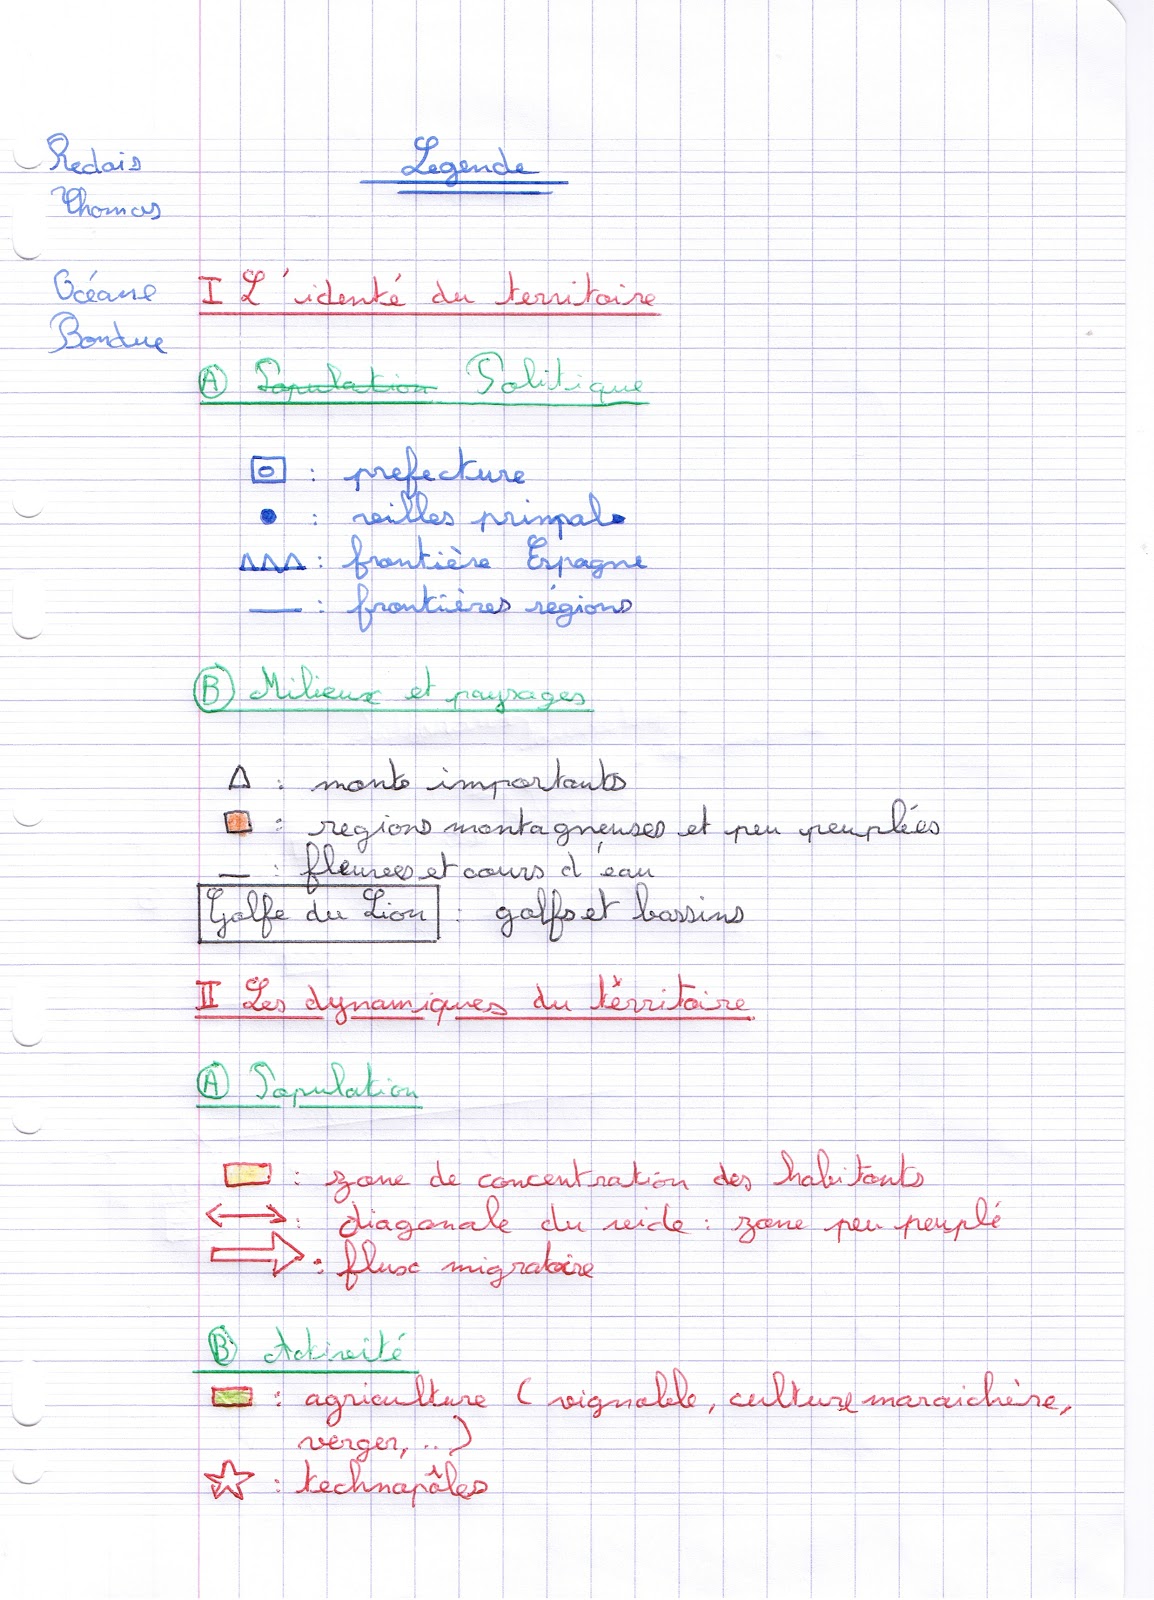 Redais
Thomas
Legende
Océane
Bondue
I L'identé du territoire
A Population Politique
: prefecture
: veilles prinpal
: frontière Espagne
: frontières régions
B Milieux et paysages
: monts importants
: regions montagneuses et peu peuplées
: fleuves et cours d'eau
Golfe du Lion : golfs et bassins
II Les dynamiques du térritoire
A Population
: zone de concentration des habitants
: diagonale du vide : zone peu peuplé
: flux migratoire
B Activité
: agriculture ( vignoble, culture maraichère,
verger, ..)
: technopôles